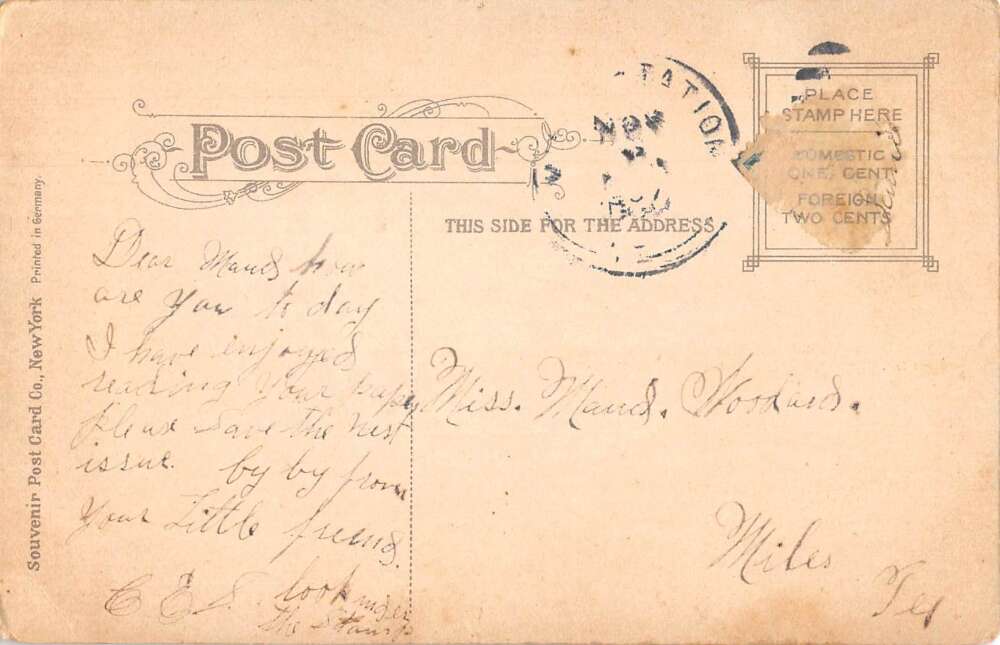 Post Card
THIS SIDE FOR THE ADDRESS
STATION
NOV
PLACE
STAMP HERE
DOMESTIC
ONE CENT
FOREIGN
TWO CENTS
Souvenir Post Card Co., New York Printed in Germany.
Dear Maud how
are you to day
I have enjoyed
reading your paper
Please save the next
issue. by by from
your Little friend.
C E S. look under
the stamp
Miss. Maud. Woodard.
Miles
Tex